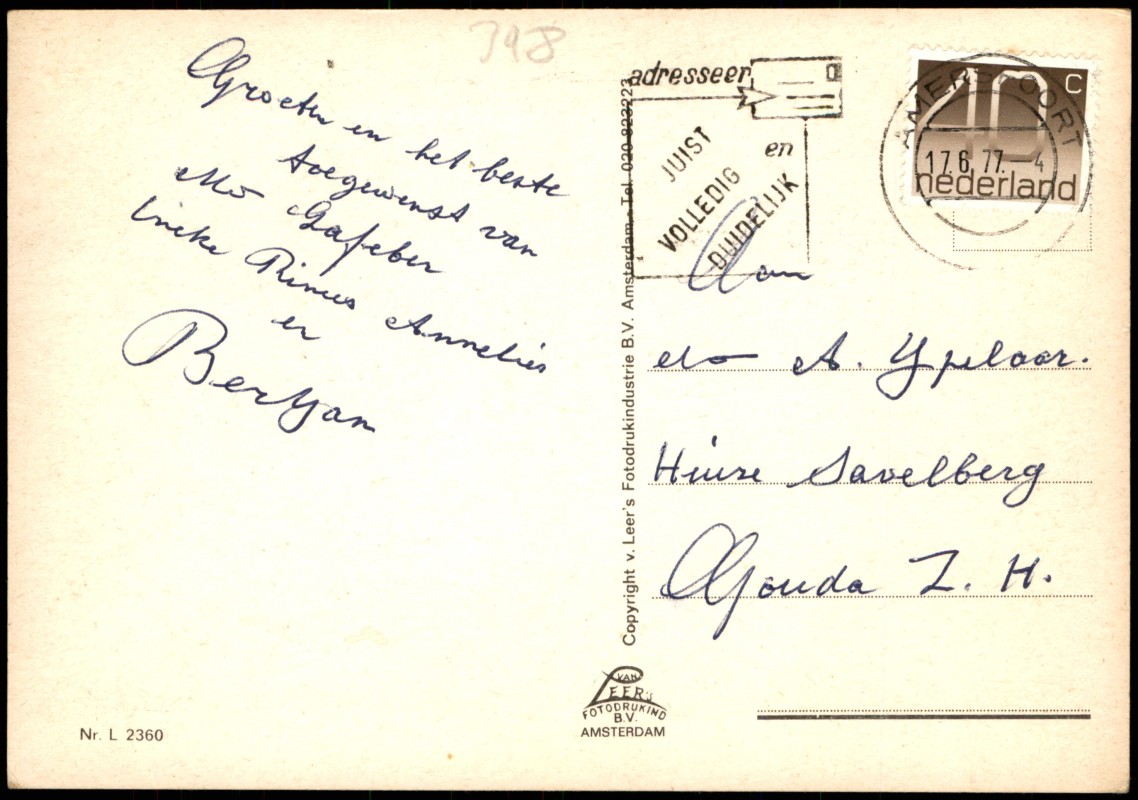 348
Groeten en het beste
toegewenst van
Mo Gafeber
Lineke Rinus Annelies
en
BertJan
Nr. L 2360
Copyright v. Leer's Fotodrukindustrie B.V. Amsterdam - Tel. 020-823223
VAN
LEER'S
FOTODRUKIND
B.V.
AMSTERDAM
adresseer
JUIST
VOLLEDIG
en
DUIDELIJK
AMERSFOORT
17.6.77. 4
40 C
nederland
Aan
A. Ypelaar.
Huize Savelberg
Gouda Z. H.